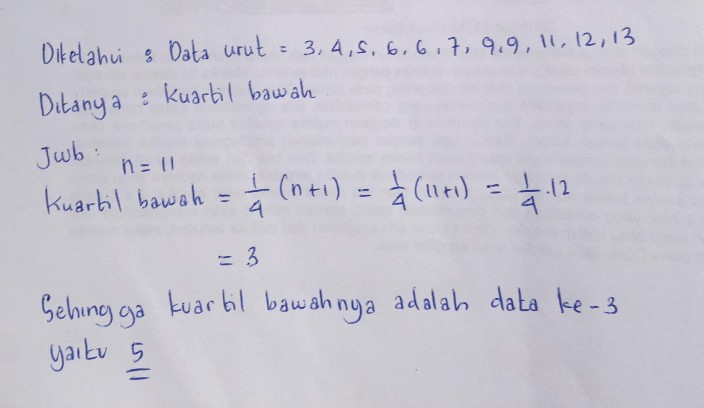 Diketahui : Data urut = 3, 4, 5, 6, 6, 7, 9, 9, 11, 12, 13
Ditanya : Kuartil bawah
Jwb :
n = 11
Kuartil bawah = 1/4 (n+1) = 1/4 (11+1) = 1/4 . 12
= 3
Sehingga kuartil bawahnya adalah data ke-3
yaitu 5